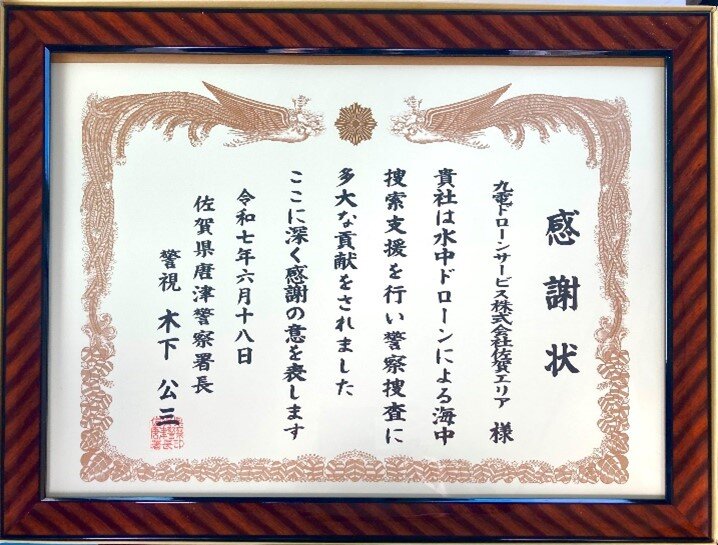 感謝状
九電ドローンサービス株式会社佐賀エリア 様
貴社は水中ドローンによる海中
捜索支援を行い警察捜査に
多大な貢献をされました
ここに深く感謝の意を表します
令和七年六月十八日
佐賀県唐津警察署長
警視 木下 公三